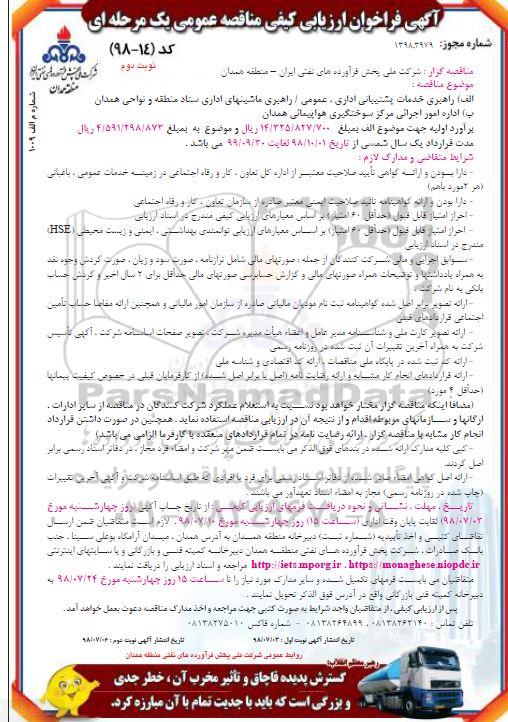 آگهی فراخوان ارزیابی کیفی مناقصه عمومی یک مرحله ای
شماره مجوز: ۱۳۹۸.۳۹۷۹
کد (۱۴-۹۸)
نوبت دوم
شرکت ملی پخش فرآورده های نفتی ایران
منطقه همدان
شماره م الف ۱۰۰۹
مناقصه گزار : شرکت ملی پخش فرآورده های نفتی ایران – منطقه همدان
موضوع مناقصه :
الف) راهبری خدمات پشتیبانی اداری ، عمومی / راهبری ماشینهای اداری ستاد منطقه و نواحی همدان
ب) اداره امور اجرائی مرکز سوختگیری هواپیمائی همدان
برآورد اولیه جهت موضوع الف بمبلغ ۱۴/۳۲۵/۸۲۷/۷۰۰ ریال و موضوع به بمبلغ ۴/۵۹۱/۲۹۸/۸۷۳ ریال
مدت قرارداد یک سال شمسی از تاریخ ۹۸/۱۰/۰۱ لغایت ۹۹/۰۹/۳۰ می باشد .
شرایط متقاضی و مدارک لازم :
- دارا بودن و ارائه گواهی تأیید صلاحیت معتبر از اداره کل تعاون ، کار و رفاه اجتماعی در زمینه خدمات عمومی ، باغبانی
(هر ۲مورد باهم)
- دارا بودن و ارائه گواهینامه تائید صلاحیت ایمنی معتبر صادره از سازمان تعاون ، کار و رفاه اجتماعی
- احراز امتیاز قابل قبول (حداقل ۶۰ امتیاز) بر اساس معیارهای ارزیابی کیفی مندرج در اسناد ارزیابی
- احراز امتیاز قابل قبول (حداقل ۶۰ امتیاز) بر اساس معیارهای ارزیابی توانمندی بهداشتی ، ایمنی و زیست محیطی (HSE)
مندرج در اسناد ارزیابی
- سوابق اجرایی و مالی شرکت کنندگان از جمله : صورتهای مالی شامل ترازنامه ، صورت سود و زیان ، صورت گردش وجوه نقد
به همراه یادداشتها و توضیحات همراه صورتهای مالی و گزارش حسابرسی صورتهای مالی حداقل برای ۲ سال اخیر و گردش حساب
بانکی به نام شرکت .
- ارائه تصویر برابر اصل شده گواهینامه ثبت نام مودیان مالیاتی صادره از سازمان امور مالیاتی و همچنین ارائه مفاصا حساب تأمین
اجتماعی قراردادهای قبلی
- ارائه تصویر کارت ملی و شناسنامه مدیر عامل و اعضاء هیأت مدیره شرکت ، تصویر صفحات اساسنامه شرکت ، آگهی تأسیس
شرکت به همراه آخرین تغییرات آن ثبت شده در روزنامه رسمی
- ارائه کد ثبت شده در پایگاه ملی مناقصات ، ارائه کد اقتصادی و شناسه ملی
- ارائه قراردادهای انجام کار مشابه و ارائه رضایت نامه (اصل یا برابر اصل شده) از کارفرمایان قبلی در خصوص کیفیت پیمانها
(حداقل ۴ مورد)
(مضافا اینکه مناقصه گزار مختار خواهد بود نسبت به استعلام عملکرد شرکت کنندگان در مناقصه از سایر ادارات ،
ارگانها و سازمانهای مربوطه اقدام و از نتیجه آن در ارزیابی مناقصه استفاده نماید . همچنین در صورت داشتن قرارداد
انجام کار مشابه با مناقصه گزار ، ارائه رضایت نامه در تمام قراردادهای منعقده با کارفرما الزامی می باشد)
- کپی کلیه مدارک ارائه شده در بندهای فوق الذکر می بایست ضمن مهر شرکت و امضاء فرد مجاز ، در دفاتر اسناد رسمی برابر
اصل گردند.
- ارائه اصل گواهی امضاء صادر شده از دفاتر اسناد رسمی برای فرد یا افرادی که طبق اساسنامه شرکت و آگهی آخرین تغییرات
(چاپ شده در روزنامه رسمی) مجاز به امضاء اسناد تعهدآور می باشند.
تاریخ ، مهلت ، نشانی و نحوه دریافت فرمهای ارزیابی کیفی : از تاریخ چاپ آگهی (روز چهارشنبه مورخ
۹۸/۰۷/۰۳) لغایت پایان وقت اداری (ساعت ۱۵) روز چهارشنبه مورخ ۹۸/۰۷/۱۰ . لازم است متقاضیان ضمن ارسال
تقاضای کتبی و اخذ تأییدیه (شماره ثبت) دبیرخانه منطقه همدان به آدرس همدان ، میدان آرامگاه بوعلی سینا ، جنب
بانک صادرات ، شرکت پخش فرآورده های نفتی منطقه همدان دبیرخانه کمیته فنی و بازرگانی و یا سایتهای اینترنتی
http://iets.mporg.ir . https://monaghese.niopdc.ir مراجعه و اسناد ارزیابی را دریافت نمایند .
متقاضیان می بایست فرمهای تکمیل شده و سایر مدارک مورد نیاز را تا ساعت ۱۵ روز چهارشنبه مورخ ۹۸/۰۷/۲۴ به
دبیرخانه کمیته فنی بازرگانی واقع در آدرس فوق الذکر تحویل نمایند .
پس از ارزیابی کیفی ، از متقاضیان واجد شرایط به صورت کتبی جهت مراجعه و اخذ مدارک مناقصه دعوت بعمل خواهد آمد.
تلفن تماس : ۰۸۱۳۸۲۶۲۱۴۰ ـ ۰۸۱۳۸۲۶۴۸۹۹ شماره فاکس ۰۸۱۳۸۲۷۵۰۱۰
تاریخ انتشار آگهی نوبت اول : ۹۸/۰۷/۰۳
تاریخ انتشار آگهی نوبت دوم : ۹۸/۰۷/۰۴
روابط عمومی شرکت ملی پخش فرآورده های نفتی منطقه همدان
رهبر معظم انقلاب:
گسترش پدیده قاچاق و تأثیر مخرب آن ، خطر جدی
و بزرگی است که باید با جدیت تمام با آن مبارزه کرد.